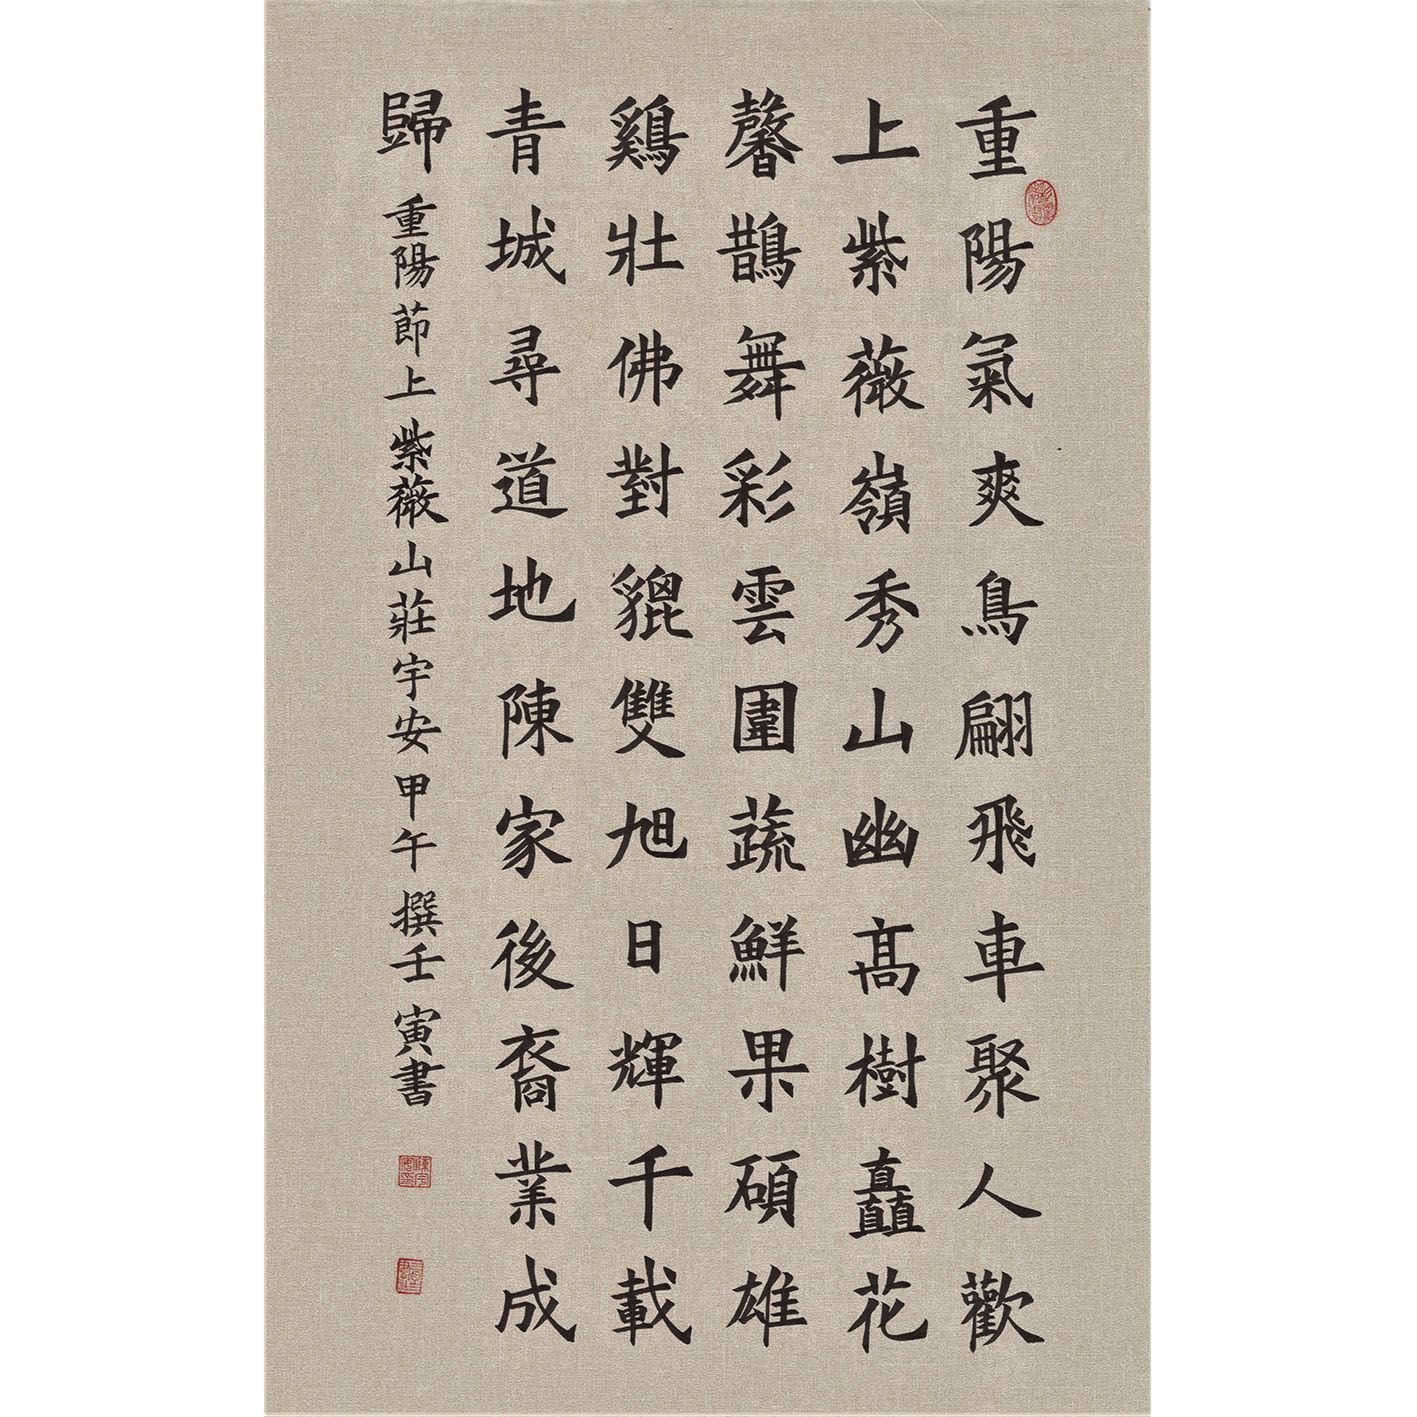 重陽氣爽鳥翩飛車聚人歡
上紫薇嶺秀山幽高樹矗花
馨鵲舞彩雲圍蔬鮮果碩雄
鷄壯佛對貔雙旭日輝千載
青城尋道地陳家後裔業成
歸
重陽節上紫薇山莊宇安甲午撰壬寅書